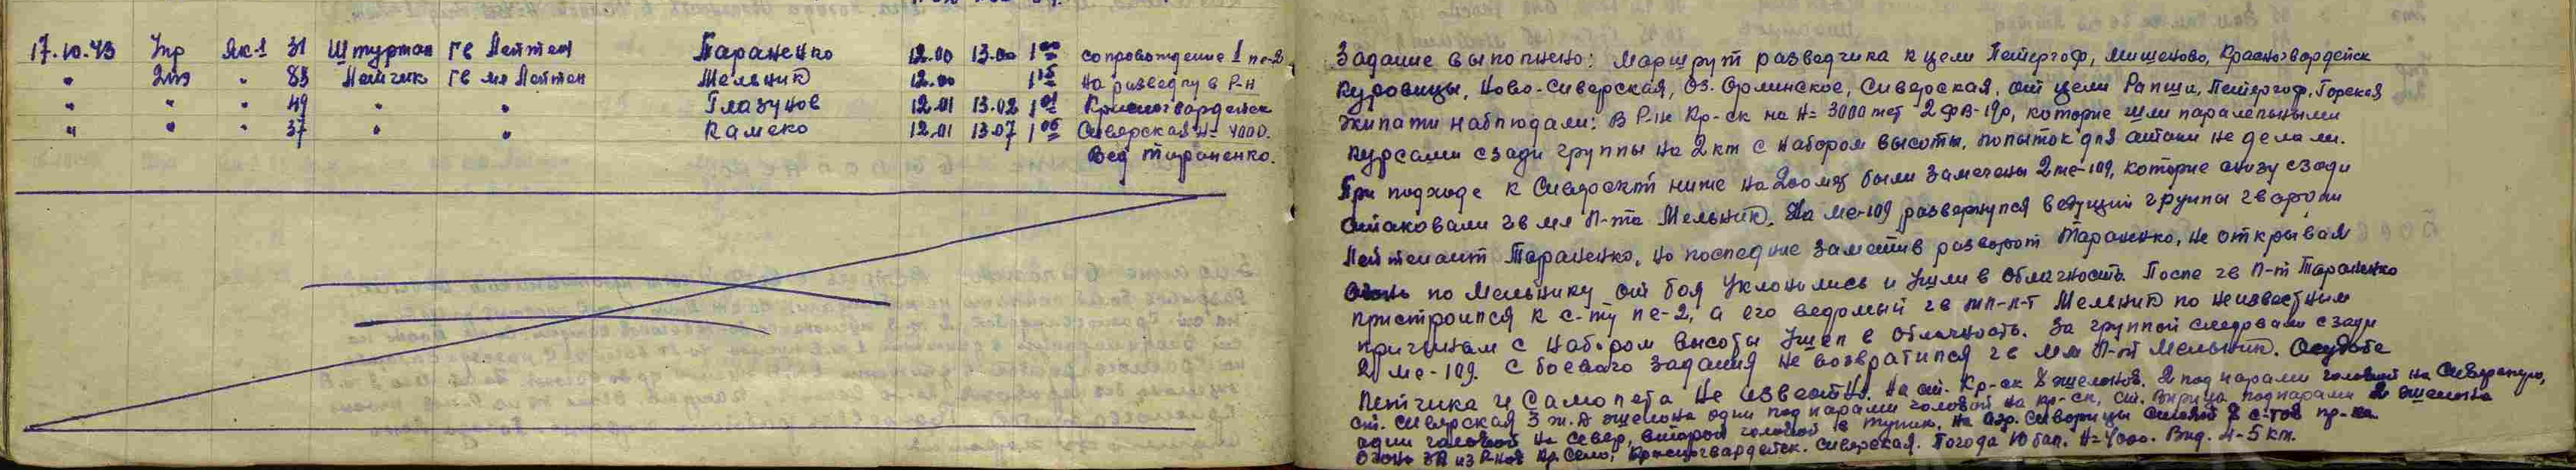 17.10.43 Упр Як-1 31 Штурман Гв Лейтен Тараненко 12.00 13.00 1 00 сопровождение 1 пе-2
" 2аэ " 83 Летчик Гв мл Лейтен Мельник 12.00 1 15 на разведку в Р-н
" " " 49 " " Глазунов 12.01 13.02 1 01 Красногвардейск
" " " 37 " " Камеко 12.01 13.07 1 06 Сиверская Н= 4000.
Вед Тараненко.
Задание выполнено: Маршрут разведчика к цели Петергоф, Мишеново, Красногвардейск
Куровицы, Ново-Сиверская, Оз. Орлинское, Сиверская, от цели Ропша, Петергоф, Горская
Экипажи наблюдали: В Р-не Кр-ск на Н= 3000 мет 2 ФВ-190, которые шли паралельными
курсами сзади группы на 2 км с набором высоты, попыток для атаки не делали.
При подходе к Сиверской ниже на 200 мет были замечены 2 ме-109, которые снизу сзади
атаковали гв мл Л-та Мельник. На ме-109 развернулся ведущий группы гвардии
Лейтенант Тараненко, но последние заметив разворот Тараненко, не открывая
огонь по Мельнику от боя уклонились и ушли в облачность. После гв Л-т Тараненко
пристроился к с-ту пе-2, а его ведомый гв мл-л-т Мельник по неизвестным
причинам с набором высоты ушел в облачность. За группой следовали сзади
2 ме-109. С боевого задания не возвратился гв мл Л-т Мельник. О судьбе
летчика и самолета не известно. На ст. Кр-ск 8 эшелонов. 2 под парами головой на Сиверскую,
ст. Сиверская 3 ж.д эшелона один под парами головой на Кр-ск, ст. Вырица под парами 2 эшелона
один головой на север, второй головой в тупик. На аэр. Сиворицы 8 с-тов пр-ка.
Огонь ЗА из Р-нов Кр. Село, Красногвардейск. Сиверская. Погода 10 бал. Н=4000. Вид. 4-5 км.